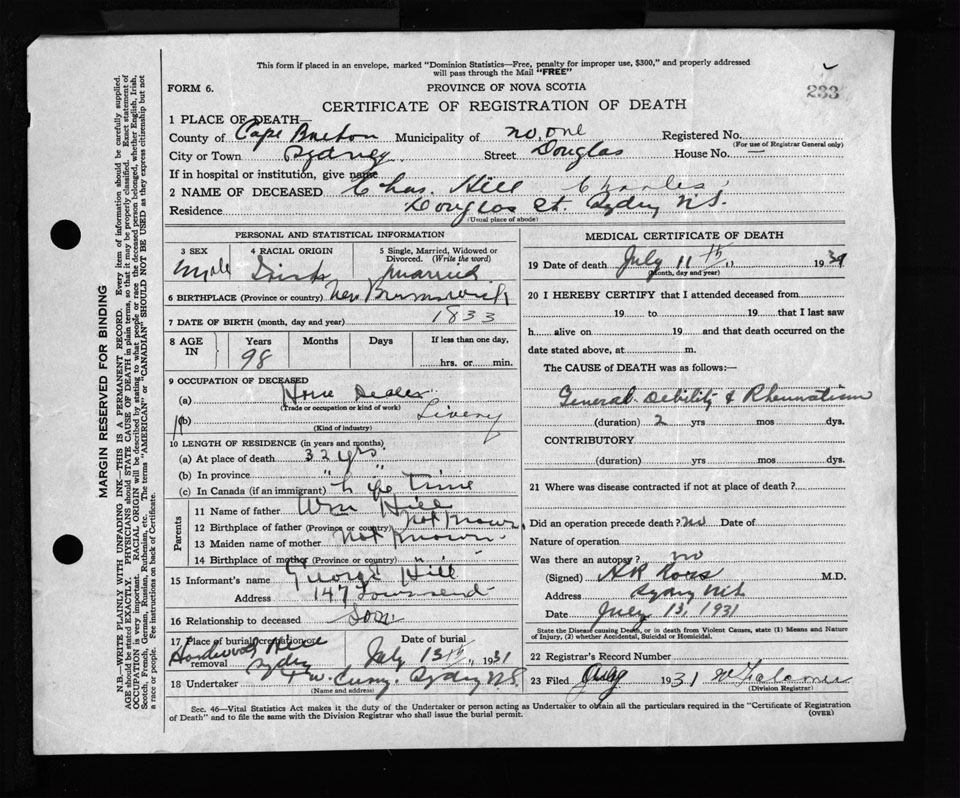 This form if placed in an envelope, marked "Dominion Statistics—Free, penalty for improper use, $300," and properly addressed
will pass through the Mail "FREE"
233
FORM 6.
PROVINCE OF NOVA SCOTIA
CERTIFICATE OF REGISTRATION OF DEATH
1 PLACE OF DEATH—
County of Cape Breton Municipality of no. one Registered No.
(For use of Registrar General only)
City or Town Sydney Street Douglas House No. —
If in hospital or institution, give name
2 NAME OF DECEASED Chas. Hill Charles
Residence Douglas St. Sydney N.S.
(Usual place of abode)
PERSONAL AND STATISTICAL INFORMATION
3 SEX
Male
4 RACIAL ORIGIN
5 Single, Married, Widowed or
Divorced. (Write the word)
married
6 BIRTHPLACE (Province or country) New Brunswick
7 DATE OF BIRTH (month, day and year) 1833
8 AGE IN
Years Months Days If less than one day,
98 hrs. or min.
9 OCCUPATION OF DECEASED
(a) Horse Dealer
(Trade or occupation or kind of work)
(b) Livery
(Kind of industry)
10 LENGTH OF RESIDENCE (in years and months)
(a) At place of death 32 yrs.
(b) In province " "
(c) In Canada (if an immigrant) life time
Parents
11 Name of father Wm Hill
12 Birthplace of father (Province or country) not known
13 Maiden name of mother not known
14 Birthplace of mother (Province or country) " "
15 Informant's name George Hill
Address 147 Townsend
16 Relationship to deceased Son
17 Place of burial, cremation or
removal Hardwood Hill Sydney
Date of burial
July 13th, 1931
18 Undertaker Sydney N.S.
(Name and address)
MEDICAL CERTIFICATE OF DEATH
19 Date of death July 11th 1931
(Month, day and year)
20 I HEREBY CERTIFY that I attended deceased from
19 to 19 that I last saw
h alive on 19 and that death occurred on the
date stated above, at m.
The CAUSE of DEATH was as follows:—
General Debility & Rheumatism
(duration) 2 yrs mos dys.
CONTRIBUTORY
(duration) yrs mos dys.
21 Where was disease contracted if not at place of death?
Did an operation precede death? no Date of
Nature of operation
Was there an autopsy? no
(Signed) A R Ross M.D.
Address Sydney N.S.
Date July 13, 1931
State the Disease causing Death, or in death from Violent Causes, state (1) Means and Nature
of Injury, (2) whether Accidental, Suicidal or Homicidal.
22 Registrar's Record Number
23 Filed July 1931
(Division Registrar)
Sec. 46—Vital Statistics Act makes it the duty of the Undertaker or person acting as Undertaker to obtain all the particulars required in the "Certificate of Registration
of Death" and to file the same with the Division Registrar who shall issue the burial permit.
(OVER)
MARGIN RESERVED FOR BINDING
N.B.—WRITE PLAINLY WITH UNFADING INK—THIS IS A PERMANENT RECORD. Every item of information should be carefully supplied.
AGE should be stated EXACTLY. PHYSICIANS should STATE CAUSE OF DEATH in plain terms, so that it may be properly classified. Exact statement of
OCCUPATION is very important. RACIAL ORIGIN will be described by stating to what people or race the deceased person belonged, whether English, Irish,
Scotch, French, German, Russian, Ruthenian, etc. The terms "AMERICAN" or "CANADIAN" SHOULD NOT BE USED as they express citizenship but not
a race or people. See instructions on back of Certificate.